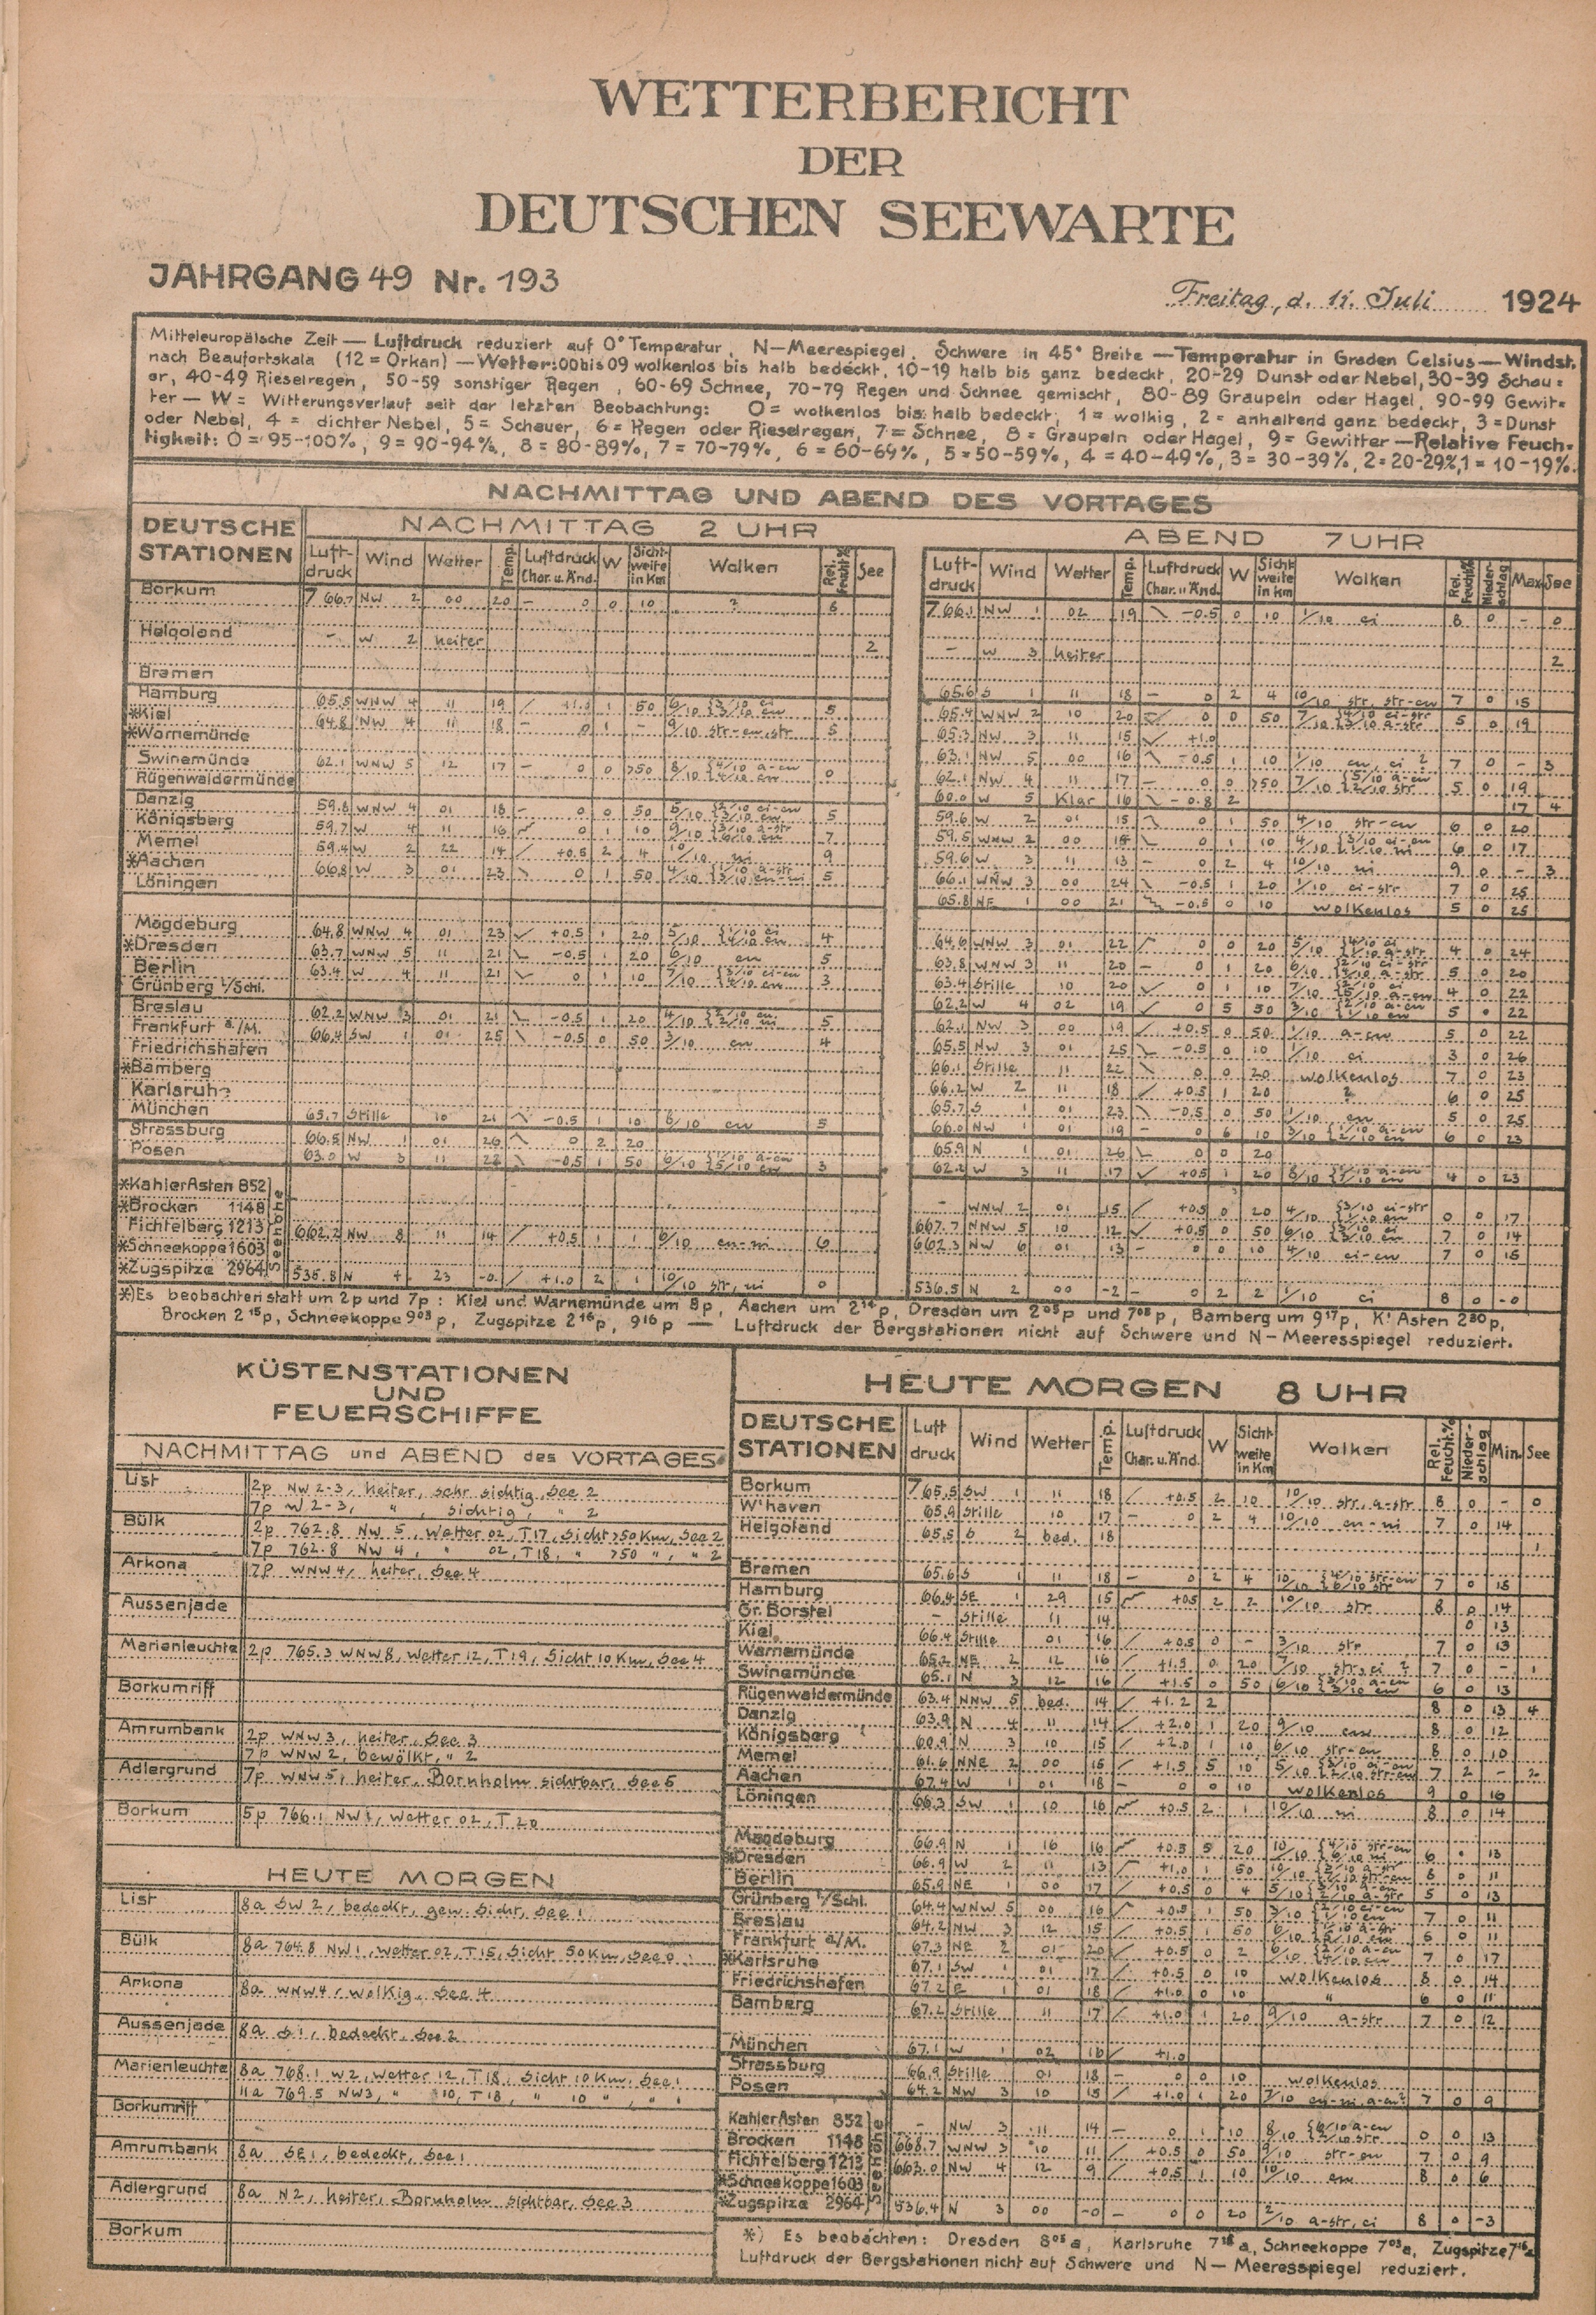 WETTERBERICHT
DER
DEUTSCHEN SEEWARTE
JAHRGANG 49 Nr. 193
Freitag, d. 11. Juli 1924
Mitteleuropäische Zeit — Luftdruck reduziert auf 0° Temperatur, N—Meerespiegel, Schwere in 45° Breite — Temperatur in Graden Celsius — Windst.
nach Beaufortskala (12 = Orkan) — Wetter: 00 bis 09 wolkenlos bis halb bedeckt, 10-19 halb bis ganz bedeckt, 20-29 Dunst oder Nebel, 30-39 Schau=
er, 40-49 Rieselregen, 50-59 sonstiger Regen, 60-69 Schnee, 70-79 Regen und Schnee gemischt, 80-89 Graupeln oder Hagel, 90-99 Gewit=
ter — W = Witterungsverlauf seit der letzten Beobachtung: 0 = wolkenlos bis halb bedeckt, 1 = wolkig, 2 = anhaltend ganz bedeckt, 3 = Dunst
oder Nebel, 4 = dichter Nebel, 5 = Schauer, 6 = Regen oder Rieselregen, 7 = Schnee, 8 = Graupeln oder Hagel, 9 = Gewitter — Relative Feuch=
tigkeit: 0 = 95-100%, 9 = 90-94%, 8 = 80-89%, 7 = 70-79%, 6 = 60-69%, 5 = 50-59%, 4 = 40-49%, 3 = 30-39%, 2 = 20-29%, 1 = 10-19%.
NACHMITTAG UND ABEND DES VORTAGES
DEUTSCHE STATIONEN
NACHMITTAG 2 UHR
ABEND 7 UHR
Luft-druck Wind Wetter Temp. Luftdruck Char. u. Änd. W Sicht-weite in Km Wolken Rel. Feucht.% See
Luft-druck Wind Wetter Temp. Luftdruck Char. u. Änd. W Sicht-weite in Km Wolken Rel. Feucht.% Nieder-schlag Max See
Borkum 766.7 NW 2 00 20 – 0 0 10 ? 6 766.1 NW 1 02 19 -0.5 0 10 1/10 ci 8 0 – 0
Helgoland – W 2 heiter 2 – W 3 heiter 2
Bremen 65.6 S 1 11 18 – 0 2 4 10/10 str, str-cu 7 0 15
Hamburg 65.5 WNW 4 11 19 1 50 5 65.4 WNW 2 10 20 0 0 50 5 0 19
*Kiel 64.8 NW 4 11 18 – 0 1 – 9/10 str-cu, str 5 65.3 NW 3 11 15 +1.0
*Warnemünde 63.1 NW 5 00 16 -0.5 1 10 1/10 cu, ci ? 7 0 – 3
Swinemünde 62.1 WNW 5 12 17 – 0 0 >50 62.1 NW 4 11 17 – 0 0 >50 5 0 19
Rügenwaldermünde 60.0 W 5 Klar 16 -0.8 2 17 4
Danzig 59.8 WNW 4 01 18 – 0 0 50 5 59.6 W 2 01 15 0 1 50 4/10 str-cu 6 0 20
Königsberg 59.7 W 4 11 16 0 1 10 7 59.5 WNW 2 00 0 1 10 6 0 17
Memel 59.4 W 2 22 14 +0.5 2 4 10/10 ni 9 59.6 W 3 11 13 – 0 2 4 10/10 ni 9 0 – 3
*Aachen 66.8 W 3 01 23 0 1 50 5 66.1 WNW 3 00 24 -0.5 1 20 1/10 ci-str 7 0 25
Löningen 65.8 NE 1 00 21 -0.5 0 10 wolkenlos 5 0 25
Magdeburg 64.8 WNW 4 01 23 +0.5 1 20 4 64.6 WNW 3 01 22 0 0 20 4 0 24
*Dresden 63.7 WNW 5 11 21 -0.5 1 20 6/10 cu 5 63.8 WNW 3 11 20 – 0 1 20 5 0 20
Berlin 63.4 W 4 11 21 0 1 10 3 63.4 Stille 10 20 0 1 10 4 0 22
Grünberg i/Schl. 62.2 W 4 02 19 0 5 50 5 0 22
Breslau 62.2 WNW 3 01 21 -0.5 1 20 5 62.1 NW 3 00 19 +0.5 0 50 1/10 a-cu 5 0 22
Frankfurt a/M. 66.4 SW 1 01 25 -0.5 0 50 3/10 cu 4 65.5 NW 3 01 25 -0.5 0 10 1/10 ci 3 0 26
Friedrichshafen 66.1 Stille 11 22 0 0 20 wolkenlos 7 0 23
*Bamberg 66.2 W 2 11 18 +0.5 1 20 ? 6 0 25
Karlsruhe 65.7 S 1 01 23 -0.5 0 50 1/10 cu 5 0 25
München 65.7 Stille 10 21 -0.5 1 10 6/10 cu 5 66.0 NW 1 01 19 – 0 6 10 6 0 23
Strassburg 66.5 NW 1 01 26 0 2 20 65.9 N 1 01 26 0 0 20
Posen 63.0 W 3 11 22 -0.5 1 50 3 62.2 W 3 11 17 +0.5 1 20 4 0 23
*Kahler Asten 852 – WNW 2 01 15 +0.5 0 20 0 0 17
*Brocken 1148 667.7 NNW 5 10 12 +0.5 0 50 7 0 14
Fichtelberg 1213 662.2 NW 8 11 14 +0.5 1 1 6/10 cu-ni 6 662.3 NW 6 01 13 – 0 0 10 4/10 ci-cu 7 0 15
*Schneekoppe 1603
*Zugspitze 2964 535.8 N 4 23 -0. +1.0 2 1 10/10 str, ni 0 536.5 N 2 00 -2 – 0 2 2 1/10 ci 8 0 -0
Seehöhe
*) Es beobachten statt um 2p und 7p: Kiel und Warnemünde um 8p, Aachen um 2¹⁴p, Dresden um 2⁰⁵p und 7⁰⁵p, Bamberg um 9¹⁷p, K! Asten 2³⁰p,
Brocken 2¹⁵p, Schneekoppe 9⁰³p, Zugspitze 2¹⁶p, 9¹⁶p — Luftdruck der Bergstationen nicht auf Schwere und N—Meeresspiegel reduziert.
KÜSTENSTATIONEN
UND
FEUERSCHIFFE
NACHMITTAG und ABEND des VORTAGES
List 2p NW 2-3, heiter, sehr sichtig, See 2
7p W 2-3, " sichtig, " 2
Bülk 2p 762.8 NW 5, Wetter 02, T 17, Sicht >50 Km, See 2
7p 762.8 NW 4, " 02, T 18, " >50 ", " 2
Arkona 7p WNW 4, heiter, See 4
Aussenjade
Marienleuchte 2p 765.3 WNW 8, Wetter 12, T 19, Sicht 10 Km, See 4
Borkumriff
Amrumbank 2p WNW 3, heiter, See 3
7p WNW 2, bewölkt, " 2
Adlergrund 7p WNW 5, heiter, Bornholm sichtbar, See 5
Borkum 5p 766.1 NW 1, Wetter 02, T 20
HEUTE MORGEN
List 8a SW 2, bedeckt, gew. Sicht, See 1
Bülk 8a 764.8 NW 1, Wetter 02, T 15, Sicht 50 Km, See 0
Arkona 8a WNW 4, wolkig, See 4
Aussenjade 8a S 1, bedeckt, See 2
Marienleuchte 8a 768.1 W 2, Wetter 12, T 18, Sicht 10 Km, See 1
11a 769.5 NW 3, " 10, T 18, " 10 ", " 1
Borkumriff
Amrumbank 8a SE 1, bedeckt, See 1
Adlergrund 8a N 2, heiter, Bornholm sichtbar, See 3
Borkum
HEUTE MORGEN 8 UHR
DEUTSCHE STATIONEN Luft druck Wind Wetter Temp. Luftdruck Char. u. Änd. W Sicht-weite in Km Wolken Rel. Feucht.% Nieder-schlag Min. See
Borkum 765.5 SW 1 11 18 +0.5 2 10 10/10 str, a-str 8 0 – 0
W'haven 65.9 Stille 10 17 – 0 2 4 10/10 cu-ni 7 0 14
Helgoland 65.5 S 2 bed. 18 1
Bremen 65.6 S 1 11 18 – 0 2 4 7 0 15
Hamburg 66.4 SE 1 29 15 +0.5 2 2 10/10 str 8 0 14
Gr. Borstel – Stille 11 14 0 13
Kiel 66.4 Stille 01 16 +0.5 0 – 3/10 str 7 0 13
Warnemünde 65.2 NE 2 12 16 +1.5 0 20 7/10 str, ci ? 7 0 – 1
Swinemünde 65.1 N 3 12 16 +1.5 0 50 6 0 13
Rügenwaldermünde 63.4 NNW 5 bed. 14 +1.2 2 8 0 13 4
Danzig 63.9 N 4 11 14 +2.0 1 20 9/10 cu 8 0 12
Königsberg 60.9 N 3 10 15 +2.0 1 10 6/10 str-cu 8 0 10
Memel 61.6 NNE 2 00 15 +1.5 5 10 7 2 – 2
Aachen 67.4 W 1 01 18 – 0 0 10 wolkenlos 9 0 16
Löningen 66.3 SW 1 10 16 +0.5 2 1 10/10 ni 8 0 14
Magdeburg 66.9 N 1 16 16 +0.5 5 20 6 • 13
*Dresden 66.9 W 2 11 13 +1.0 1 50 8 0 11
Berlin 65.9 NE 1 00 17 +0.5 0 4 5 0 13
Grünberg i/Schl. 64.4 WNW 5 00 16 +0.5 1 50 7 0 11
Breslau 64.2 NW 3 12 15 +0.5 1 50 5 0 11
Frankfurt a/M. 67.3 NE 2 01 20 +0.5 0 2 7 0 17
*Karlsruhe 67.1 SW 1 01 17 +0.5 0 10 wolkenlos 8 0 14
Friedrichshafen 67.2 E 1 01 18 +1.0 0 10 " 6 0 11
Bamberg 67.2 Stille 11 17 +1.0 1 20 9/10 a-str 7 0 12
München 67.1 W 1 02 16 +1.0
Strassburg 66.9 Stille 01 18 – 0 0 10 wolkenlos
Posen 64.2 NW 3 10 15 +1.0 1 20 7/10 cu-ni, a-cu? 7 0 9
Kahler Asten 852 – NW 3 11 14 – 0 1 10 0 0 13
Brocken 1148 668.7 WNW 3 10 11 +0.5 0 50 9/10 str-cu 7 0 9
Fichtelberg 1213 663.0 NW 4 12 9 +0.5 1 10 10/10 cu 8 0 6
*Schneekoppe 1603
*Zugspitze 2964 536.4 N 3 00 -0 – 0 0 20 2/10 a-str, ci 8 0 -3
Seehöhe
*) Es beobachten: Dresden 8⁰⁵a, Karlsruhe 7¹⁸a, Schneekoppe 7⁰³a, Zugspitze 7¹⁶a
Luftdruck der Bergstationen nicht auf Schwere und N—Meeresspiegel reduziert.